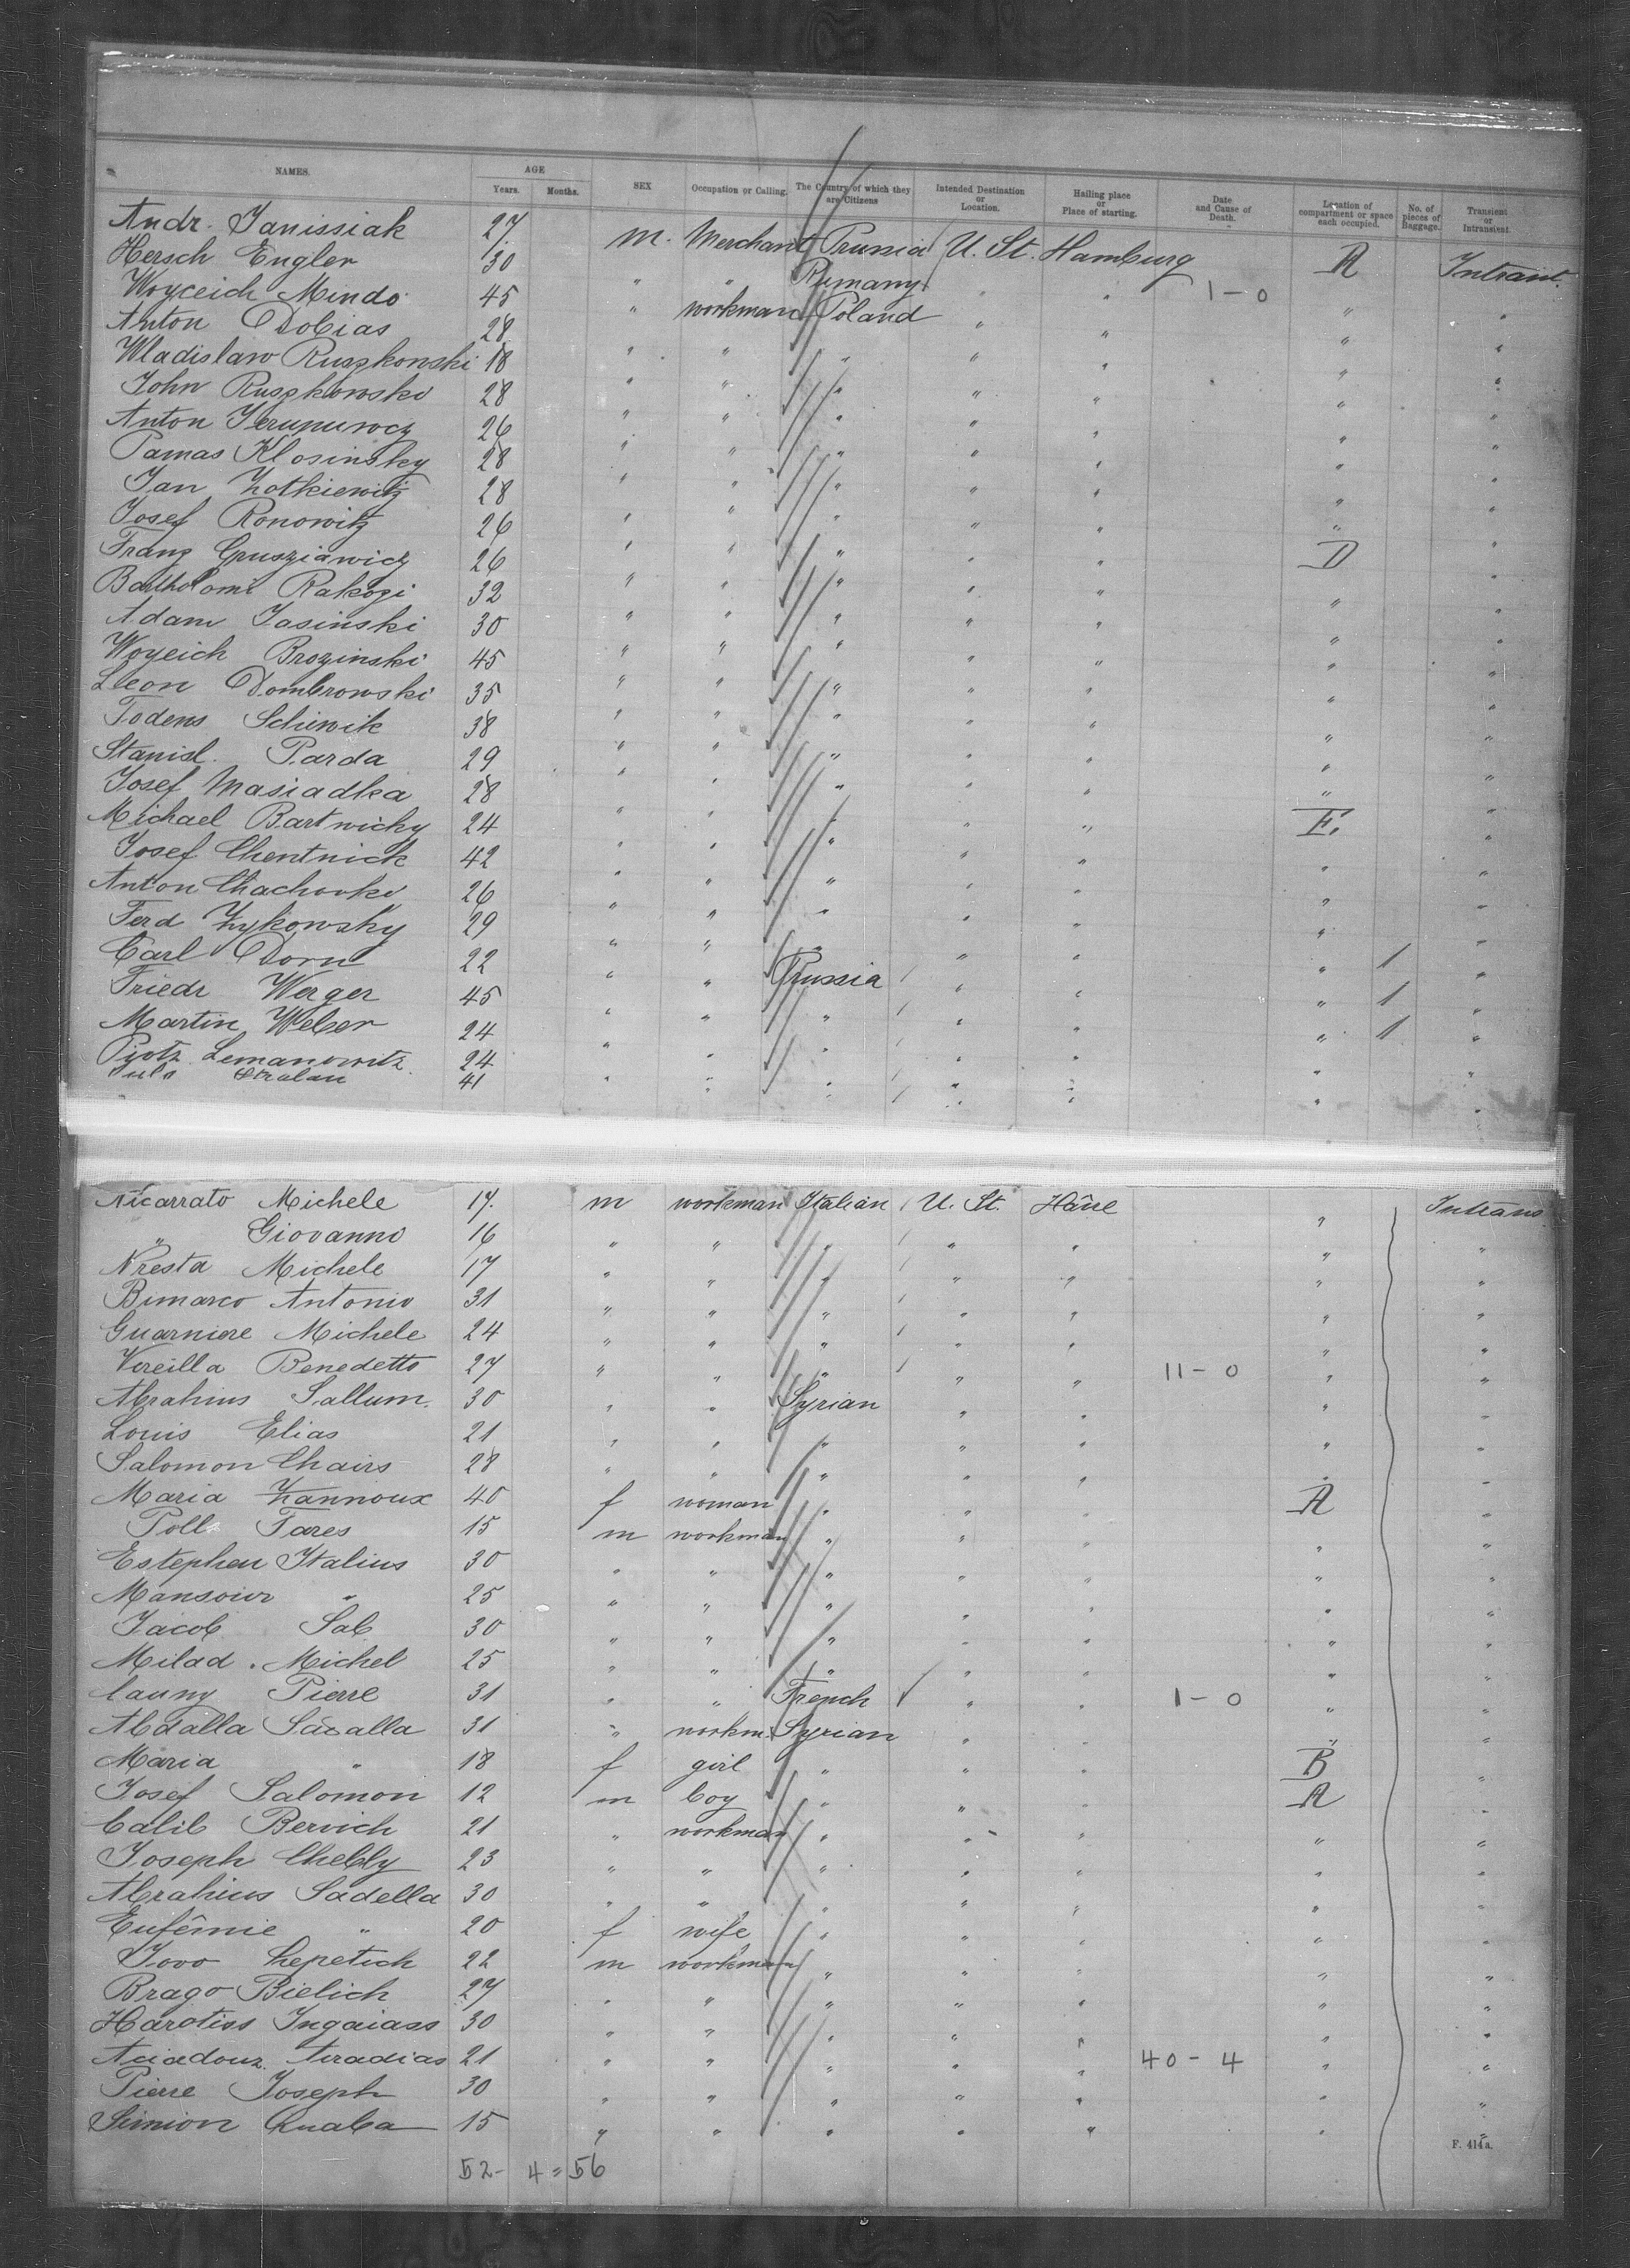 NAMES. AGE Years. Months. SEX Occupation or Calling. The Country of which they are Citizens Intended Destination or Location. Hailing place or Place of starting. Date and Cause of Death. Location of compartment or space each occupied. No. of pieces of Baggage. Transient or Intransient.
Andr. Janissiak 27 m. Merchant U. St. Hamburg A Intrant.
Hersch Engler 30 " " Rumany " " 1-0 " "
Woyceich Mindo 45 " workman Poland " " " "
Anton Dobias 28 " " " " " " "
Wladislaw Ruszkowski 18 " " " " " " "
John Ruszkowski 28 " " " " " " "
Anton 26 " " " " " " "
Pamas Klosinsky 28 " " " " " " "
Jan Zotkiewitz 28 " " " " " " "
Josef Ronowitz 26 " " " " " D "
Franz Grusziawicz 26 " " " " " " "
Bartholom Rakozi 32 " " " " " " "
Adam Jasinski 30 " " " " " " "
Woyeich Brozinski 45 " " " " " " "
Leon Dombrowski 35 " " " " " " "
Todens Schiwik 38 " " " " " " "
Stanisl. Parda 29 " " " " " " "
Josef Masiadka 28 " " " " " E. "
Michael Bartwichy 24 " " " " " " "
Josef Chentnick 42 " " " " " " "
Anton Chachovki 26 " " " " " " "
Ferd Zykowsky 29 " " " " " " "
Carl Dorn 22 " " Prussia " " " 1 "
Friedr Werger 45 " " " " " " 1 "
Martin Weber 24 " " " " " " 1 "
Piotz Lemanowitz 24 " " " " " " "
41
Nicarrato Michele 17. m workman Italian U. St. Hâvre " Intrans
" Giovanno 16 " " " " " " "
Nresta Michele 17 " " " " " " "
Bimarco Antonio 31 " " " " " " "
Guarniere Michele 24 " " " " " " "
Vireilla Benedetto 27 " " " " " 11-0 " "
Abrahius Sallum. 30 " " Syrian " " " "
Louis Elias 21 " " " " " " "
Salomon Chairs 28 " " " " " " "
Maria Zannoux 40 f woman " " " A "
Poll Fares 15 m workman " " " " "
Estephen Italius 30 " " " " " " "
Mansour " 25 " " " " " " "
Jacob Sab 30 " " " " " " "
Milad. Michel 25 " " " " " " "
Launy Pierre 31 " " French " " 1-0 " "
Abdalla Saxalla 31 " workm. Syrian " " " "
Maria " 18 f girl " " " B "
Josef Salomon 12 m boy " " " A "
Calib Bervich 21 " workman " " " " "
Joseph Chebly 23 " " " " " " "
Abrahius Sadella 30 " " " " " " "
Eufêmie " 20 f wife " " " " "
Jovo Lepetich 22 m workman " " " " "
Brago Bielich 27 " " " " " " "
Harotiss Ingaiass 30 " " " " " " "
Aciadouz Aradias 21 " " " " " 40-4 " "
Pierre Joseph 30 " " " " " " "
Simion 15 " " " " " " "
F. 414a.
52- 4=56